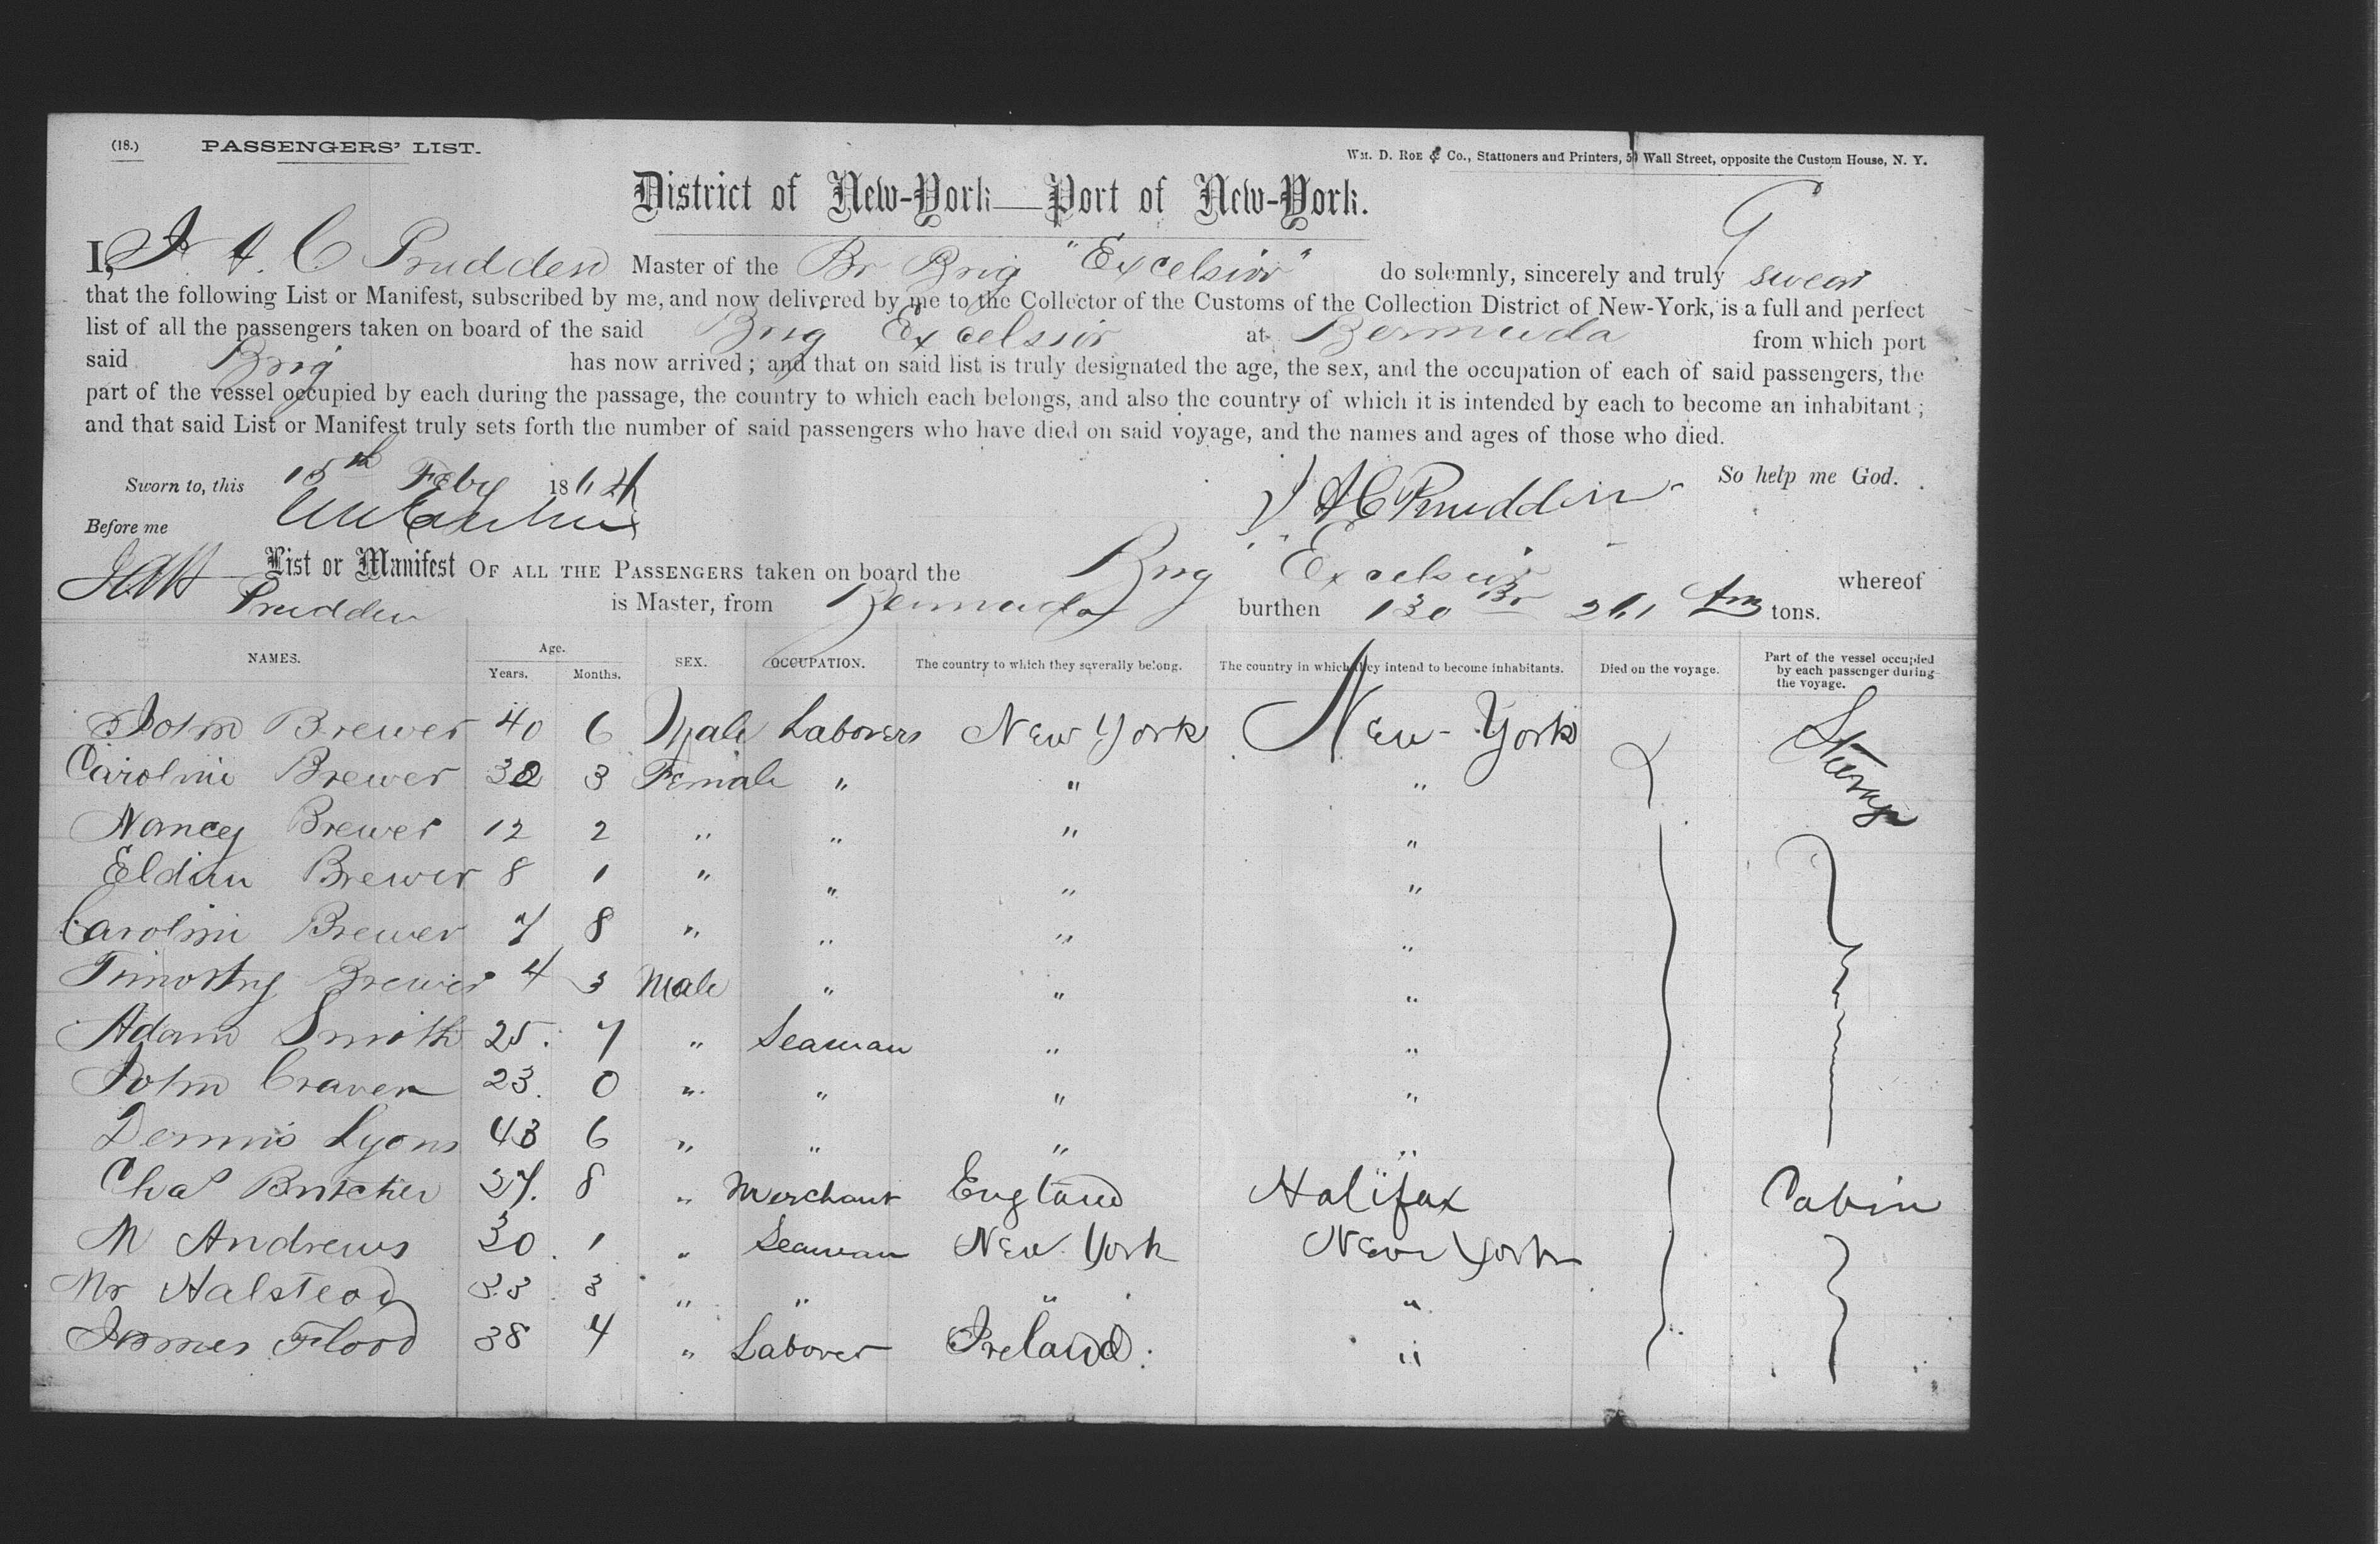 (18.) PASSENGERS' LIST. Wm. D. Roe & Co., Stationers and Printers, 50 Wall Street, opposite the Custom House, N. Y.
District of New-York—Port of New-York.
I, A. C Prudden Master of the Br Brig "Excelsior" do solemnly, sincerely and truly swear
that the following List or Manifest, subscribed by me, and now delivered by me to the Collector of the Customs of the Collection District of New-York, is a full and perfect
list of all the passengers taken on board of the said Brig Excelsior at Bermuda from which port
said Brig has now arrived; and that on said list is truly designated the age, the sex, and the occupation of each of said passengers, the
part of the vessel occupied by each during the passage, the country to which each belongs, and also the country of which it is intended by each to become an inhabitant;
and that said List or Manifest truly sets forth the number of said passengers who have died on said voyage, and the names and ages of those who died.
Sworn to, this 15th Feby 1864 So help me God.
Before me A C Prudden
List or Manifest OF ALL THE PASSENGERS taken on board the Brig Excelsior whereof
Prudden is Master, from Bermuda burthen 130 Br 261 Am tons.
NAMES. Age. Years. Months. SEX. OCCUPATION. The country to which they severally belong. The country in which they intend to become inhabitants. Died on the voyage. Part of the vessel occupied by each passenger during the voyage.
John Brewer 40 6 Male Laborers New York New-York Steerage
Caroline Brewer 32 3 Female " " "
Nancy Brewer 12 2 " " " "
Brewer 8 1 " " " "
Caroline Brewer 7 8 " " " "
Timothy Brewer 4 3 Male " " "
Adam Smith 25 7 " Seaman " "
John Craven 23 0 " " " "
Dennis Lyons 43 6 " " " "
Chas Butcher 27 8 " Merchant England Halifax Cabin
M Andrews 30 1 " Seaman New York New York
Mr Halstead 33 3 " " " "
James Flood 38 4 " Laborer Ireland "